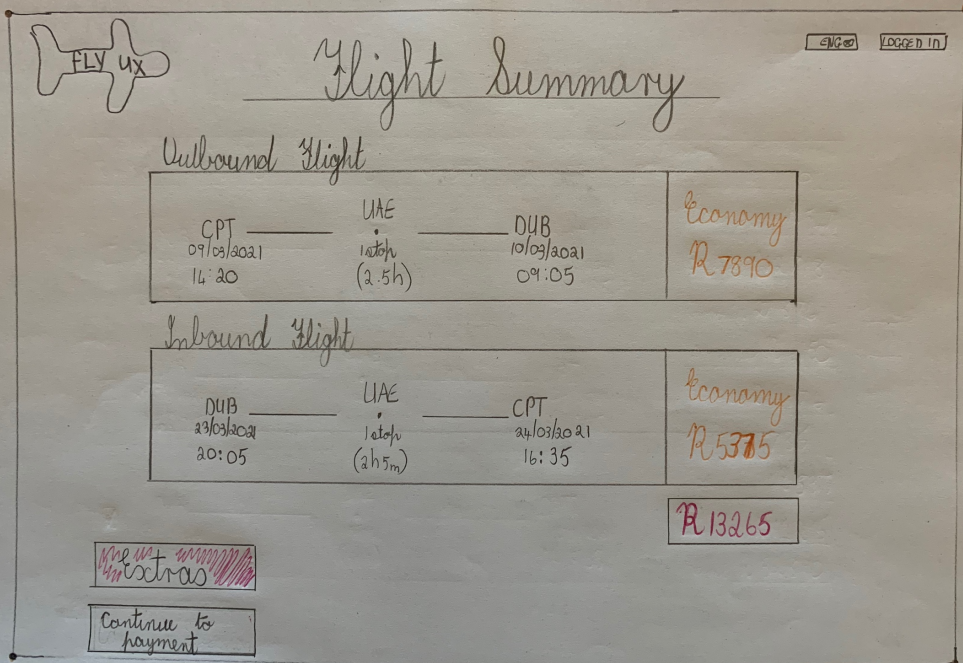 FLY UX
Flight Summary
ENG
LOGGED IN
Outbound Flight
CPT
09/03/2021
14:20
UAE
1 stop
(2.5h)
DUB
10/03/2021
09:05
Economy
R7890
Inbound Flight
DUB
23/03/2021
20:05
UAE
1 stop
(2h5m)
CPT
24/03/2021
16:35
Economy
R5375
R13265
Extras
Continue to
payment